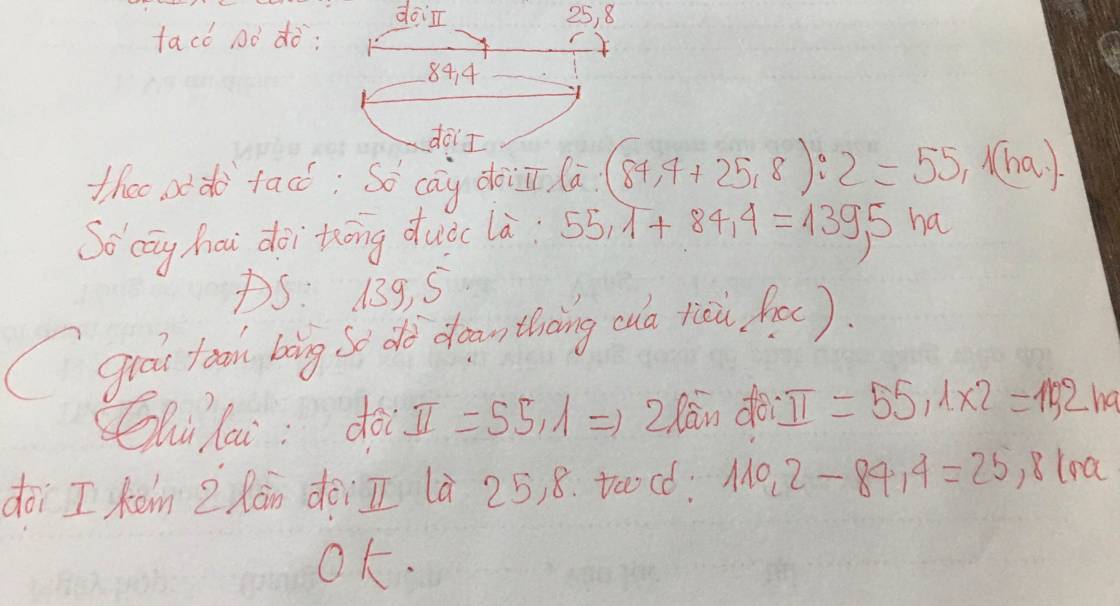 ta có sơ đồ:
đội II
25,8
84,4
đội I
theo sơ đồ ta có : Số cây đội II là (84,4 + 25,8) : 2 = 55,1(ha).
Số cây hai đội trồng được là : 55,1 + 84,4 = 139,5 ha
ĐS: 139,5
(giải toán bằng sơ đồ đoạn thẳng của tiểu học).
Thử lại : đội II = 55,1 => 2 lần đội II = 55,1x2 = 110,2 ha
đội I kém 2 lần đội II là 25,8. ta có: 110,2 - 84,4 = 25,8 ha
OK.